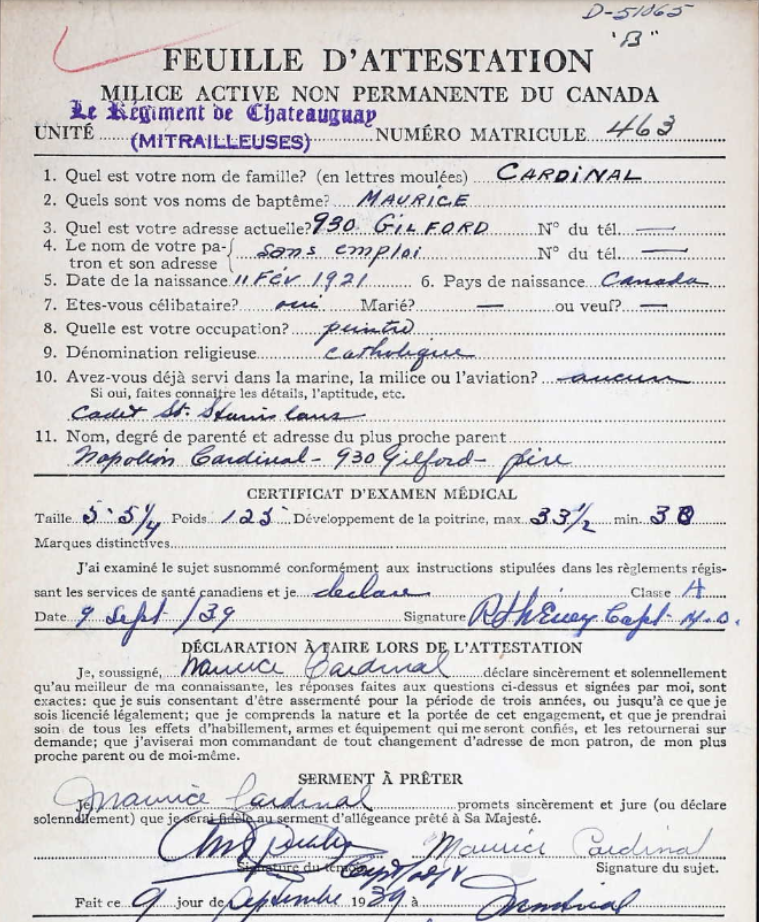 D-51065
"B"
FEUILLE D'ATTESTATION
MILICE ACTIVE NON PERMANENTE DU CANADA
Le Régiment de Chateauguay
UNITÉ (MITRAILLEUSES) NUMÉRO MATRICULE 463
1. Quel est votre nom de famille? (en lettres moulées) CARDINAL
2. Quels sont vos noms de baptême? MAURICE
3. Quel est votre adresse actuelle? 930 GILFORD N° du tél. —
4. Le nom de votre pa-
tron et son adresse { sans emploi N° du tél. —
5. Date de la naissance 11 Fév 1921 6. Pays de naissance Canada
7. Etes-vous célibataire? oui Marié? — ou veuf? —
8. Quelle est votre occupation? peintre
9. Dénomination religieuse catholique
10. Avez-vous déjà servi dans la marine, la milice ou l'aviation? aucun
Si oui, faites connaître les détails, l'aptitude, etc.
Cadet St. Stanislaus
11. Nom, degré de parenté et adresse du plus proche parent
Napoléon Cardinal - 930 Gilford - père
CERTIFICAT D'EXAMEN MÉDICAL
Taille 5' 5 1/4 Poids 125 Développement de la poitrine, max. 33 1/2 min. 30
Marques distinctives
J'ai examiné le sujet susnommé conformément aux instructions stipulées dans les règlements régis-
sant les services de santé canadiens et je declare Classe A
Date 9 Sept /39 Signature Capt. M.O.
DÉCLARATION À FAIRE LORS DE L'ATTESTATION
Je, soussigné, Maurice Cardinal déclare sincèrement et solennellement
qu'au meilleur de ma connaissante, les réponses faites aux questions ci-dessus et signées par moi, sont
exactes: que je suis consentant d'être assermenté pour la période de trois années, ou jusqu'à ce que je
sois licencié légalement; que je comprends la nature et la portée de cet engagement, et que je prendrai
soin de tous les effets d'habillement, armes et équipement qui me seront confiés, et les retournerai sur
demande; que j'aviserai mon commandant de tout changement d'adresse de mon patron, de mon plus
proche parent ou de moi-même.
SERMENT À PRÊTER
Je, Maurice Cardinal promets sincèrement et jure (ou déclare
solennellement) que je serai fidèle au serment d'allégeance prêté à Sa Majesté.
Maurice Cardinal
Signature du témoin Signature du sujet.
Fait ce 9 jour de Septembre 1939 à Montréal